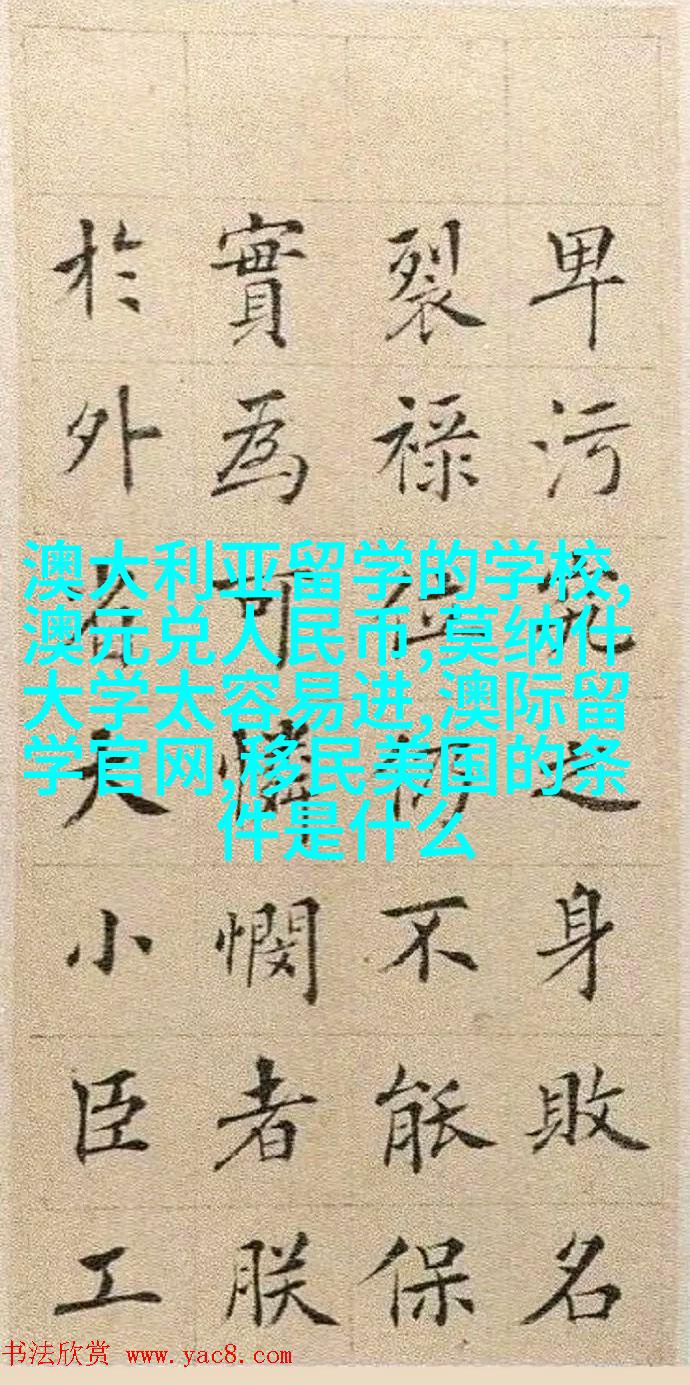 卑污究之身敗名
裂祿位仍不能保
實為可憐憫者朕
於外省大小臣工
澳大利亚留学的学校,
澳元兑人民币,莫纳什
大学太容易进,澳际留
学官网,移民美国的条
件是什么
书法欣赏 www.yac8.com